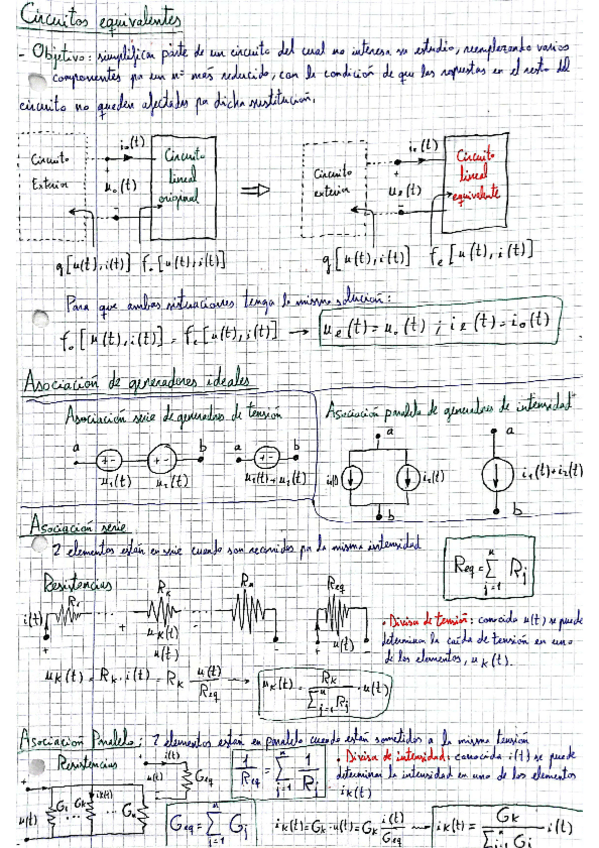 Circuitos equivalentes
- Objetivo: simplificar parte de un circuito del cual no interesa su estudio, reemplazando varios
componentes por un nº más reducido, con la condición de que las repuestas en el resto del
circuito no queden afectadas por dicha sustitución.
Circuito Exterior
i₀(t)
+
u₀(t)
-
Circuito lineal original
⇒
Circuito exterior
i₀(t)
+
u₀(t)
-
Circuito lineal equivalente
g[u(t),i(t)] f₀[u(t),i(t)]
g[u(t),i(t)] fe[u(t),i(t)]
Para que ambas situaciones tenga la misma solución:
f₀[u(t),i(t)] = fe[u(t),i(t)] → ue(t) = u₀(t) ; ie(t) = i₀(t)
Asociación de generadores ideales
Asociación serie de generadores de tensión
a + - + - b a + - b
u₁(t) u₂(t) u₁(t)+u₂(t)
Asociación paralelo de generadores de intensidad
a a
i₂(t) i₁(t)+i₂(t)
b b
Asociación serie
2 elementos están en serie cuando son recorridos por la misma intensidad
Req = Σ(j=1, n) Rj
Resistencias
R₁ Rk Rn Req
i(t)
+ uk(t) -
u(t)
+ u(t) -
· Divisor de tensión: conocida u(t) se puede
determinar la caída de tensión en uno
de los elementos, uk(t).
uk(t) = Rk · i(t) = Rk u(t)/Req → uk(t) = Rk/Σ(j=1, n) Rj · u(t)
Asociación Paralelo: 2 elementos están en paralelo cuando están sometidos a la misma tensión
Resistencias
i(t)
+
u(t) Geq
1/Req = Σ(j=1, n) 1/Rj
· Divisor de intensidad: conocida i(t) se puede
determinar la intensidad en uno de los elementos
ik(t)
+
u(t)
G₁ Gk ik(t) Gn
Geq = Σ(j=1, n) Gj
ik(t) = Gk · u(t) = Gk i(t)/Geq → ik(t) = Gk/Σ(j=1) Gj · i(t)